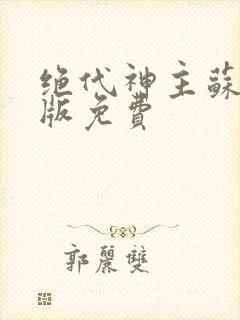 绝代神主蘇
版免費
郭麗雙